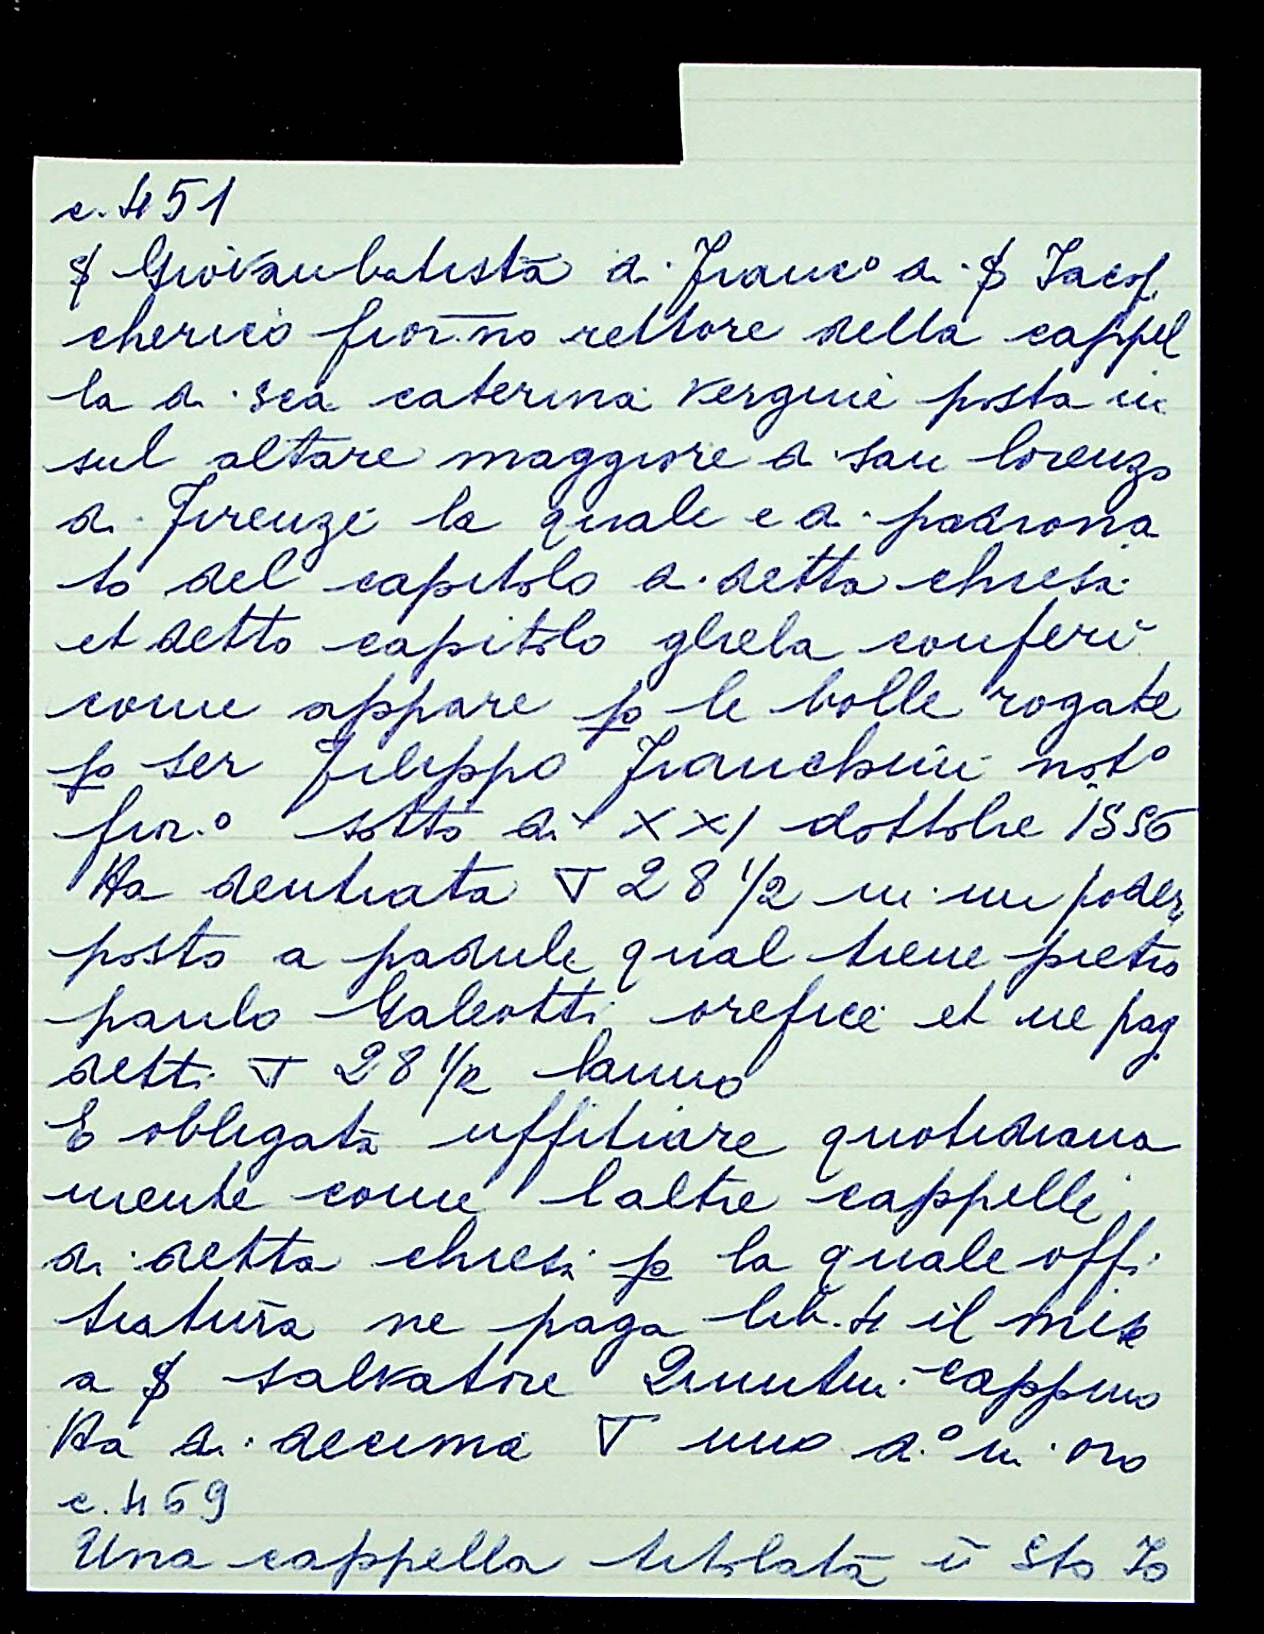 c. 451
$ Giovanbatista di Franc° di $ Iacof.
cherico fior.no rettore della cappel
la di sca caterina vergine posta in
sul altare maggiore di san lorenzo
di Firenze la quale e di padrona
to del capitolo di detta chiesa
et detto capitolo gliela conferì
come appare p le bolle rogate
p ser Filippo Franchini not°
fior.° sotto di XXI dottobre 1556
Ha dentrata ∇ 28 1/2 in un poder
posto a padule qual tiene pietro
paulo Galeotti orefice et ne pag
detti ∇ 28 1/2 lanno
E obligata uffitiare quotidiana
mente come laltre cappelle
di detta chiesa p la quale offi
tiatura ne paga lib. 4 il mese
a $ salvatore Quintini cappno
Ha di decima ∇ uno d.° in oro
c. 469
Una cappella titolata ī Sto Io